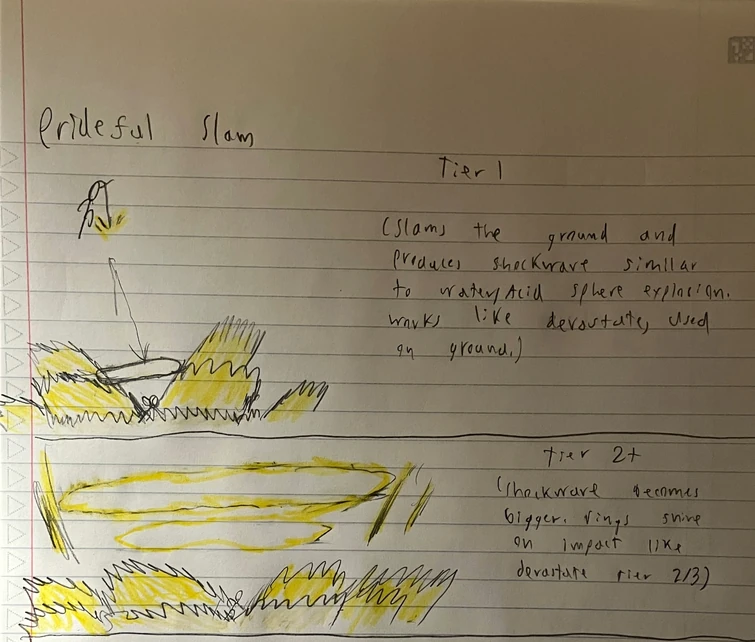 Prideful Slam
Tier 1
(Slams the ground and
produces shockwave simillar
to water/Acid sphere explosion.
works like devastate, used
on ground.)
Tier 2+
(Shockwave becomes
bigger. rings shine
on impact like
devastate tier 2/3)